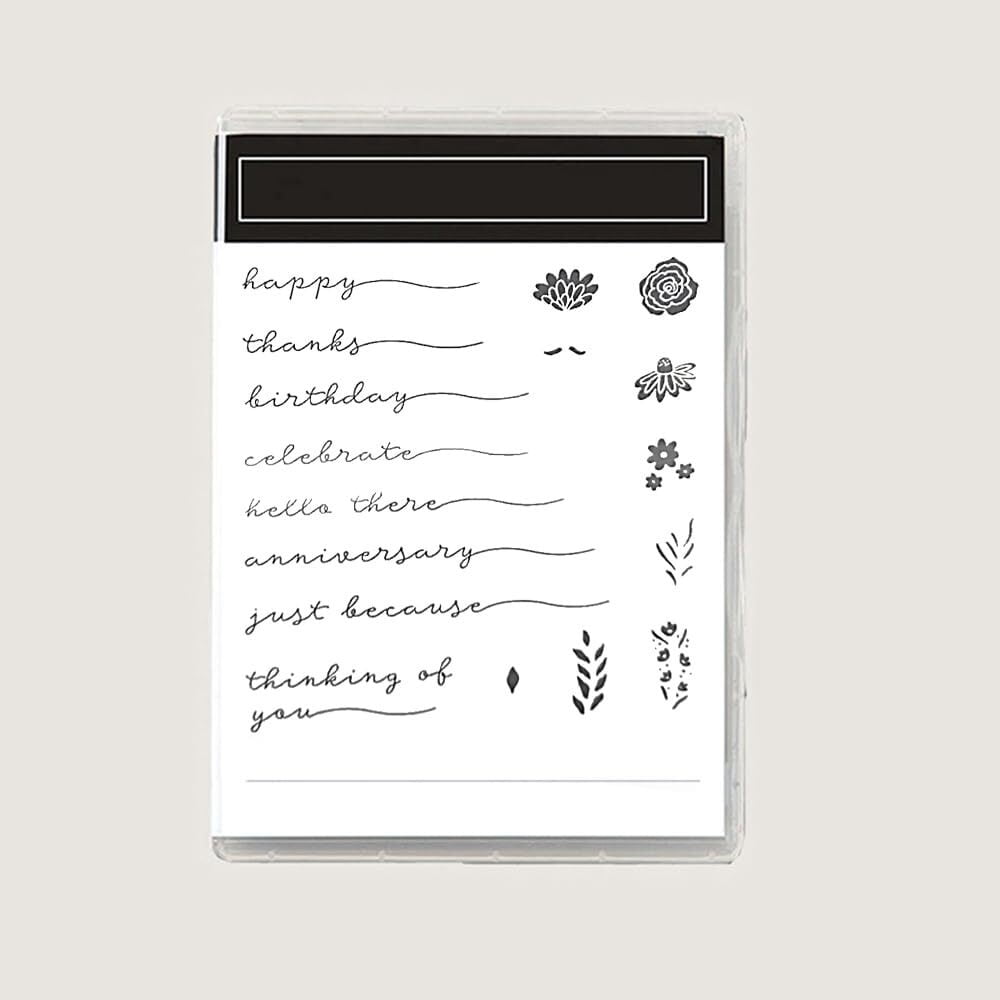 happy
thanks
birthday
celebrate
hello there
anniversary
just because
thinking of
you